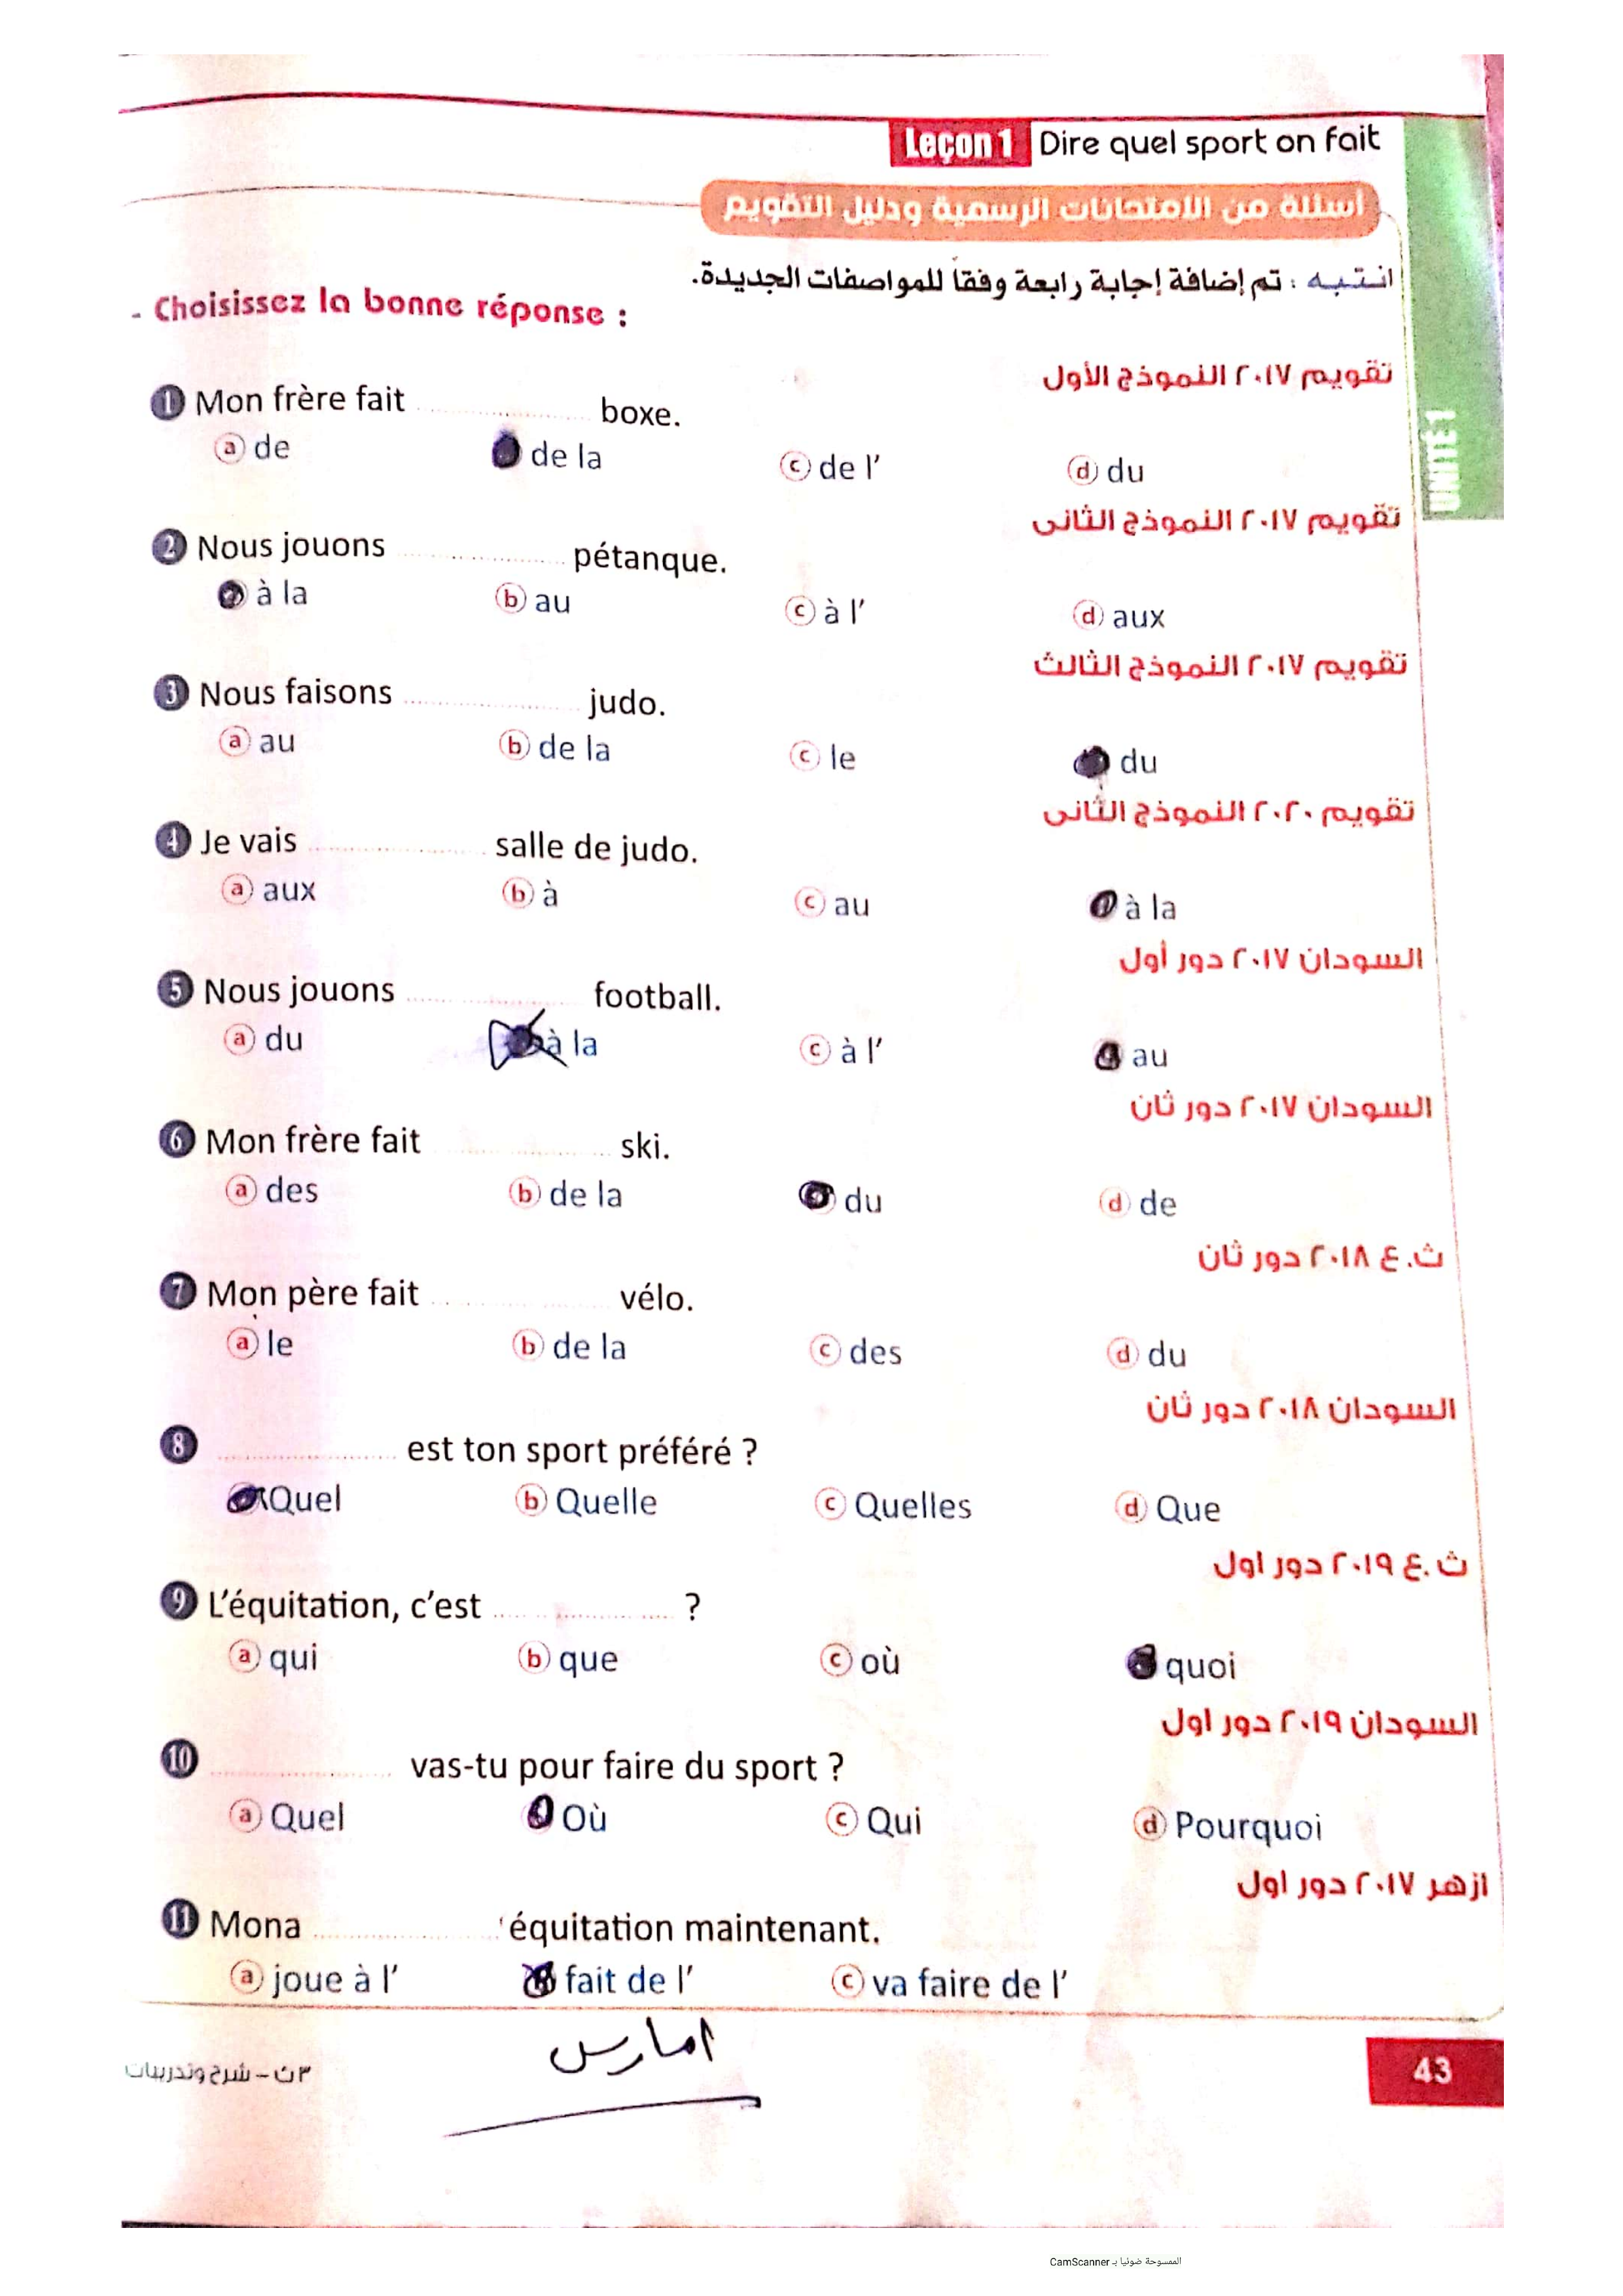 Leçon 1 Dire quel sport on fait
أسئلة من الامتحانات الرسمية ودليل التقويم
انتبه : تم إضافة إجابة رابعة وفقاً للمواصفات الجديدة.
- Choisissez la bonne réponse :
تقويم ٢٠١٧ النموذج الأول
1 Mon frère fait .................... boxe.
a de de la c de l’ d du
تقويم ٢٠١٧ النموذج الثانى
2 Nous jouons .................... pétanque.
à la b au c à l’ d aux
تقويم ٢٠١٧ النموذج الثالث
3 Nous faisons .................... judo.
a au b de la c le du
تقويم ٢٠٢٠ النموذج الثانى
4 Je vais .................... salle de judo.
a aux b à c au à la
السودان ٢٠١٧ دور أول
5 Nous jouons .................... football.
a du à la c à l’ au
السودان ٢٠١٧ دور ثان
6 Mon frère fait .................... ski.
a des b de la du d de
ث.ع ٢٠١٨ دور ثان
7 Mon père fait .................... vélo.
a le b de la c des d du
السودان ٢٠١٨ دور ثان
8 .................... est ton sport préféré ?
Quel b Quelle c Quelles d Que
ث.ع ٢٠١٩ دور اول
9 L’équitation, c’est .................... ?
a qui b que c où quoi
السودان ٢٠١٩ دور اول
10 .................... vas-tu pour faire du sport ?
a Quel Où c Qui d Pourquoi
ازهر ٢٠١٧ دور اول
11 Mona .................... équitation maintenant.
a joue à l’ fait de l’ c va faire de l’
امارس
٣ث – شرح وتدريبات
43
UNITÉ 1
الممسوحة ضوئيا بـ CamScanner